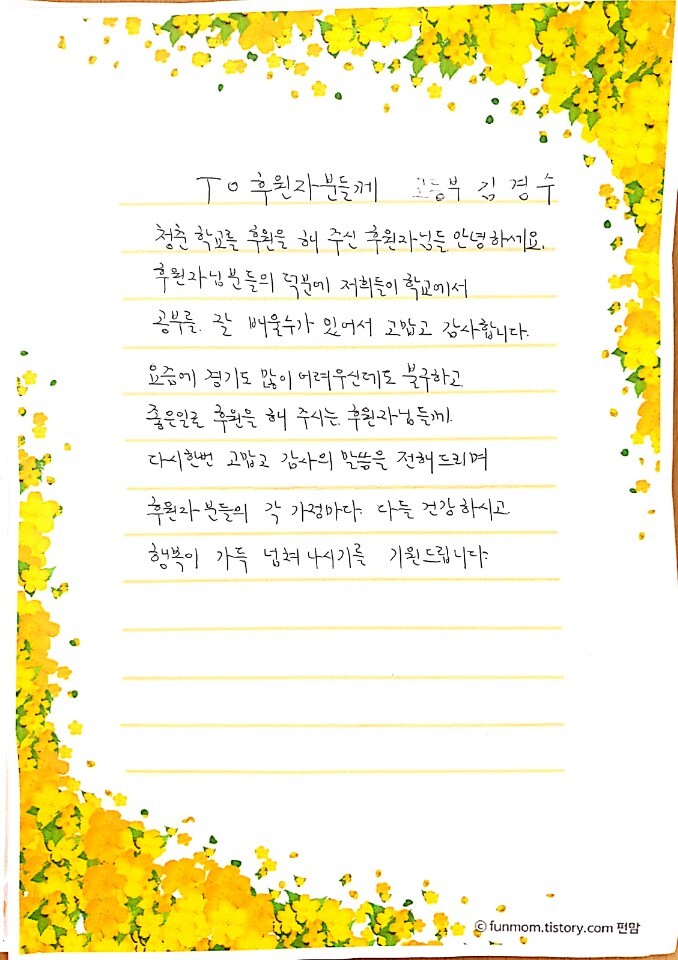 TO 후원자분들께 고등부 김경수
청춘 학교를 후원을 해 주신 후원자님들 안녕하세요.
후원자님분들의 덕분에 저희들이 학교에서
공부를 잘 배울수가 있어서 고맙고 감사합니다.
요즘에 경기도 많이 어려우신데도 불구하고
좋은일로 후원을 해 주시는 후원자님들께.
다시한번 고맙고 감사의 말씀을 전해드리며
후원자분들의 각 가정마다 다들 건강하시고
행복이 가득 넘쳐나시기를 기원드립니다.
© funmom.tistory.com 편맘